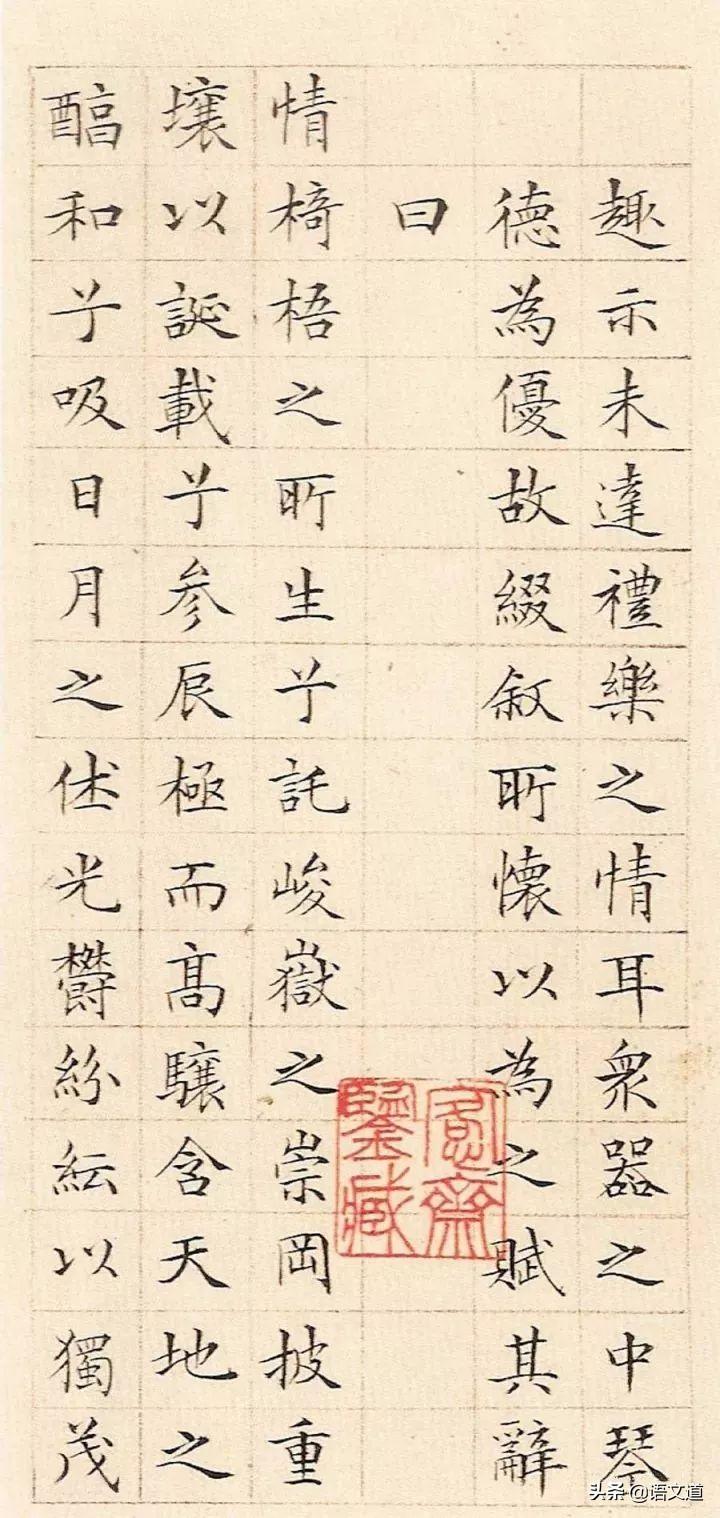 趣示未達禮樂之情耳衆器之中琴
德為優故綴叙所懷以為之賦其辭
曰
情椅梧之所生兮託峻嶽之崇岡披重
壤以誕載兮参辰極而髙驤含天地之
醕和兮吸日月之休光鬱紛紜以獨茂
齋
鑒藏
头条 @语文道